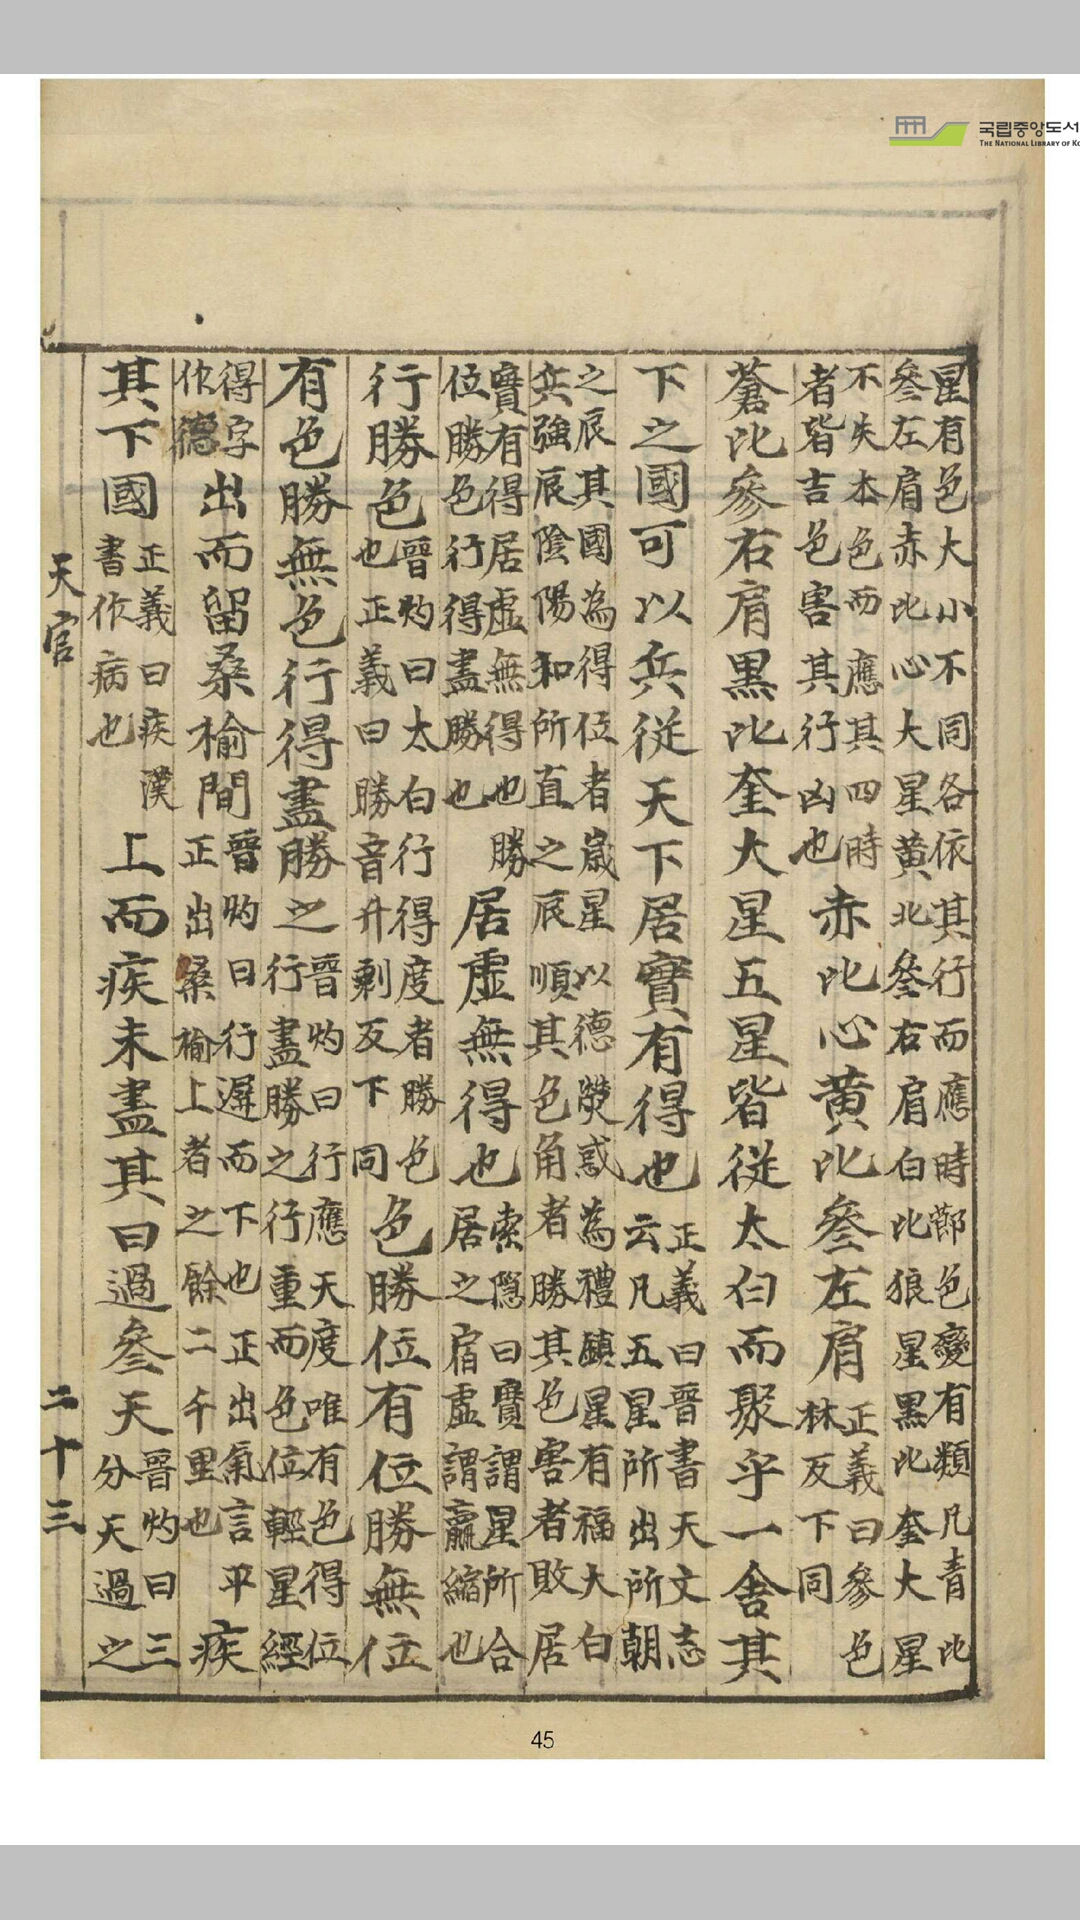 국립중앙도서
THE NATIONAL LIBRARY OF KO
星有色大小不同各依其行而應時節色變有類凡青比
參左肩赤比心大星黃比參右肩白比狼星黑比奎大星
不失本色而應其四時
者皆吉色害其行凶也
赤比心黃比參左肩
正義曰參色
林反下同
蒼比參右肩黑比奎大星五星皆從太白而聚乎一舍其
下之國可以兵從天下居實有得也
正義曰晉書天文志
云凡五星所出所朝
之辰其國為得位者歲星以德熒惑為禮鎮星有福太白
兵強辰陰陽和所直之辰順其色角者勝其色害者敗居
實有得居虛無得也勝
位勝色行得盡勝也
居虛無得也
索隱曰實謂星所合
居之宿虛謂贏縮也
行勝色
晉灼曰太白行得度者勝色
也正義曰勝音升剩反下同
色勝位有位勝無位
有色勝無色行得盡勝之
晉灼曰行應天度唯有色得位
行盡勝之行重而色位輕星經
得字
作德
出而留桑榆間
晉灼曰行遲而下也正出氣言平
正出桑榆上者之餘二千里也
疾
其下國
正義曰疾漢
書作病也
上而疾未盡其日過參天
晉灼曰三
分天過之
天官
二十三
45